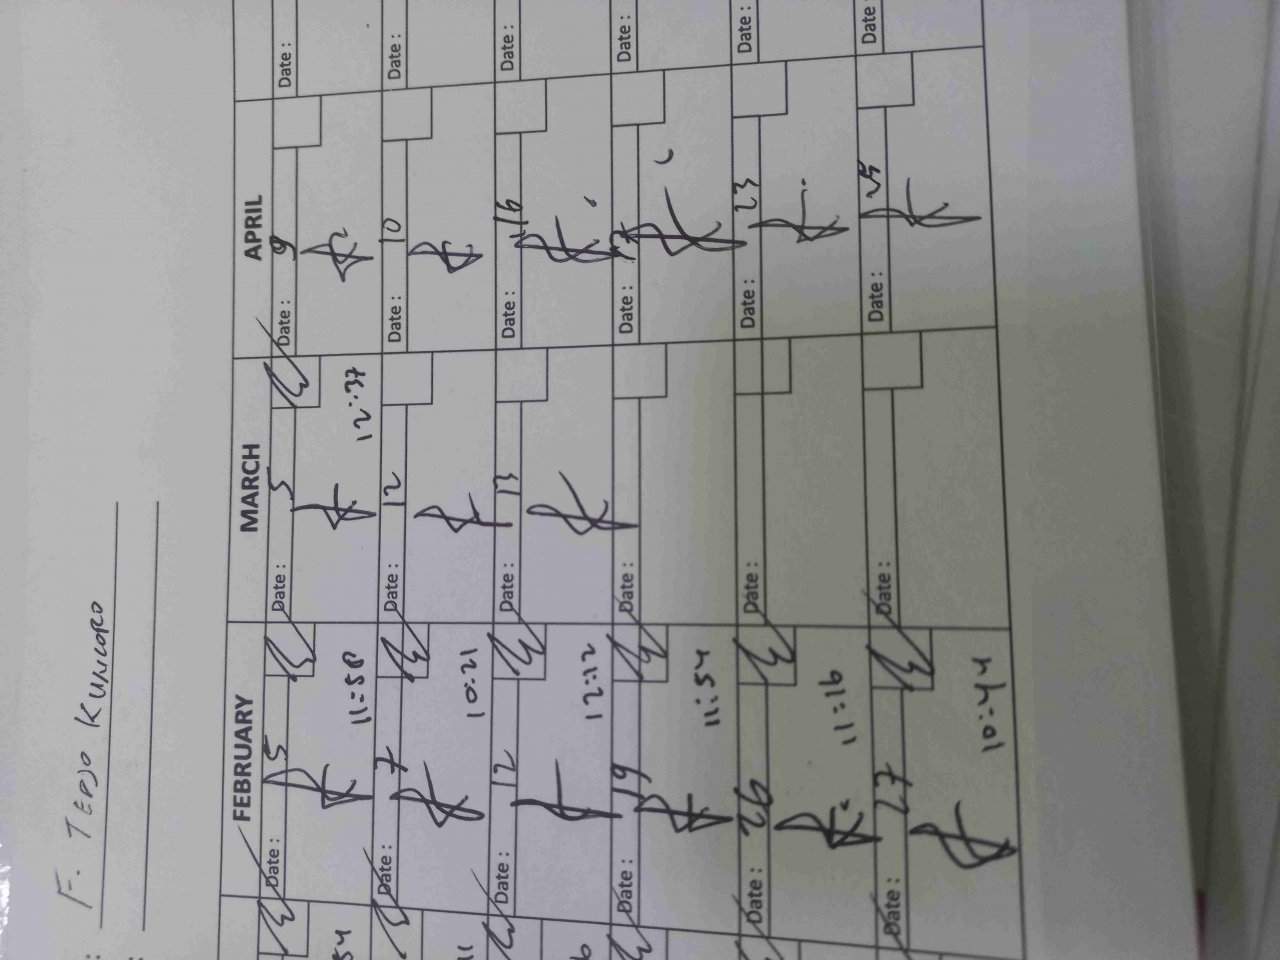 : F. TEDJO KUNCORO
:
FEBRUARY MARCH APRIL
Date : 5 Date : 5 Date : 9 Date :
54 11=58 12:37
Date : 7 Date : 12 Date : 10 Date :
11 10:21
Date : 12 Date : 13 Date : 16 Date :
6 12:12
Date : 19 Date : Date : 17 Date :
11:54
Date : 26 Date : Date : 23 Date :
11=16
Date : 27 Date : Date : 25 Date :
10:44